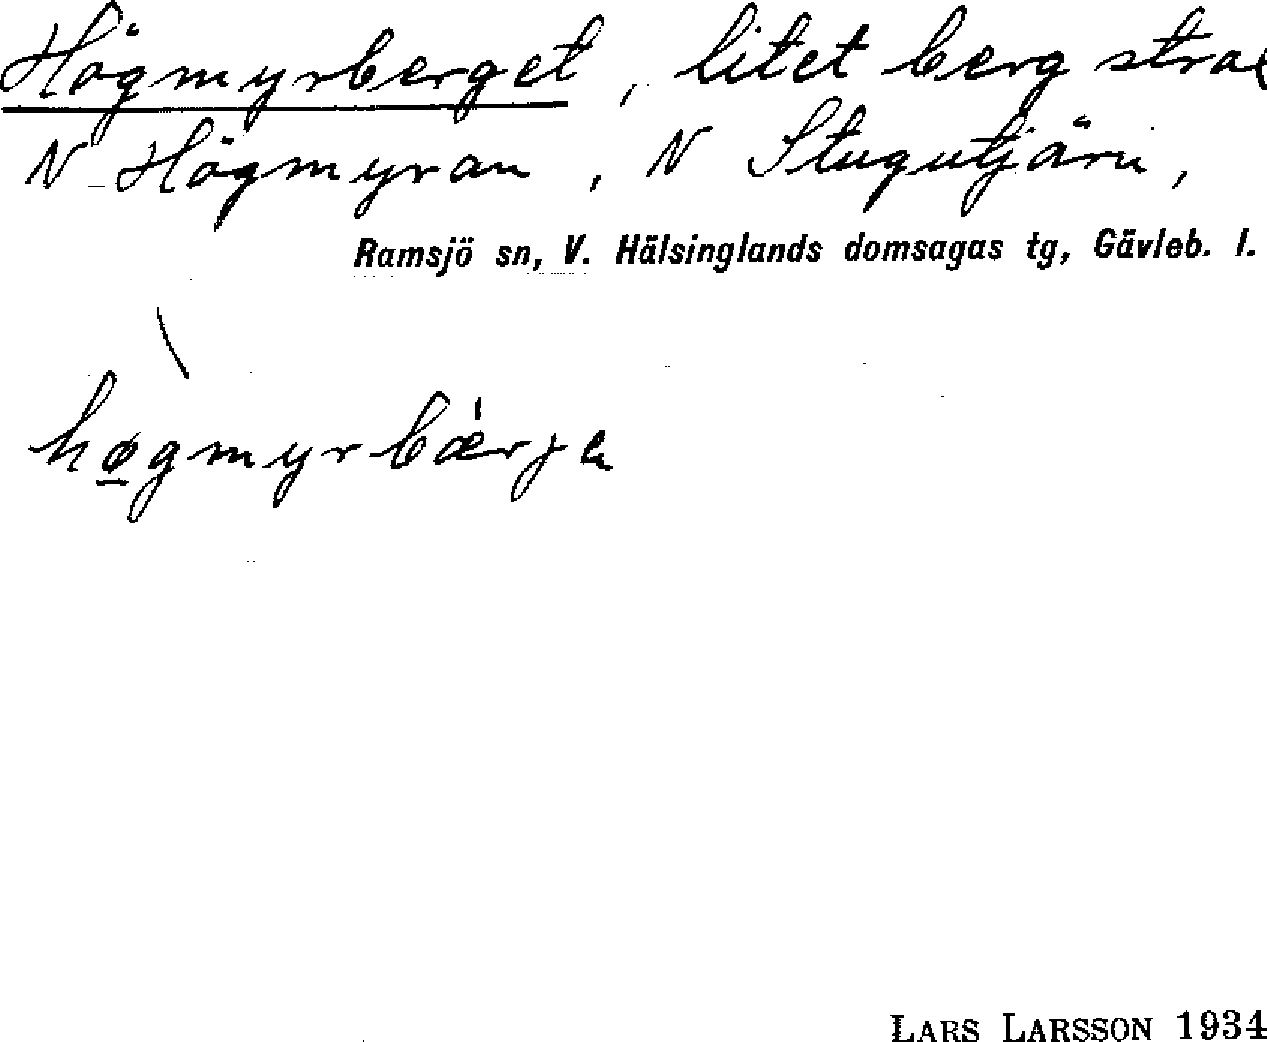 Högmyrberget, litet berg strax
N Högmyran, N Stugutjärn,
Ramsjö sn, V. Hälsinglands domsagas tg, Gävleb. l.
høgmyrbærje
LARS LARSSON 1934